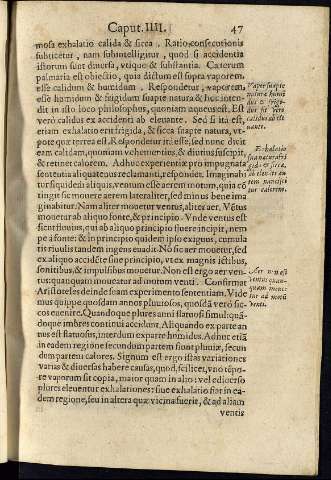 Caput. IIII. 47
mosa exhalatio calida & sicca. Ratio consecutionis
subticetur, nam subintelligitur, quod si accidentia
istorum sunt diuersa, vtique & substantia. Cæterum
palmaria est obiectio, quia dictum est supra vaporem
esse calidum & humidum. Respondetur, vaporem,
esse humidum & frigidum suapte natura & huc inten-
dit in isto loco philosophus, quoniam aqueus est. Est
verò calidus ex accidenti ab eleuante. Sed si ita est,
etiam exhalatio erit frigida, & sicca suapte natura, vt-
pote quæ terrea est. Respondetur ita esse, sed nunc dicit
eam calidam, quoniam vehementius, & diutius suscipit
& retinet calorem. Adhuc experientiæ pro impugnata
sententia aliquatenus reclamanti, respondet. Imaginaba
tur siquidem aliquis, ventum esse aerem motum, quia cõ
tingit sic mouere aerem lateraliter, sed minus bene ima
ginabatur. Nam aliter mouetur ventus, aliter aer. Vẽtus
mouetur ab aliquo fonte, & principio. Vnde ventus est
sicut fluuius, qui ab aliquo principio fluere incipit, nem
pe à fonte: & in principio quidem ipso exiguus, cumula
tis riuulis tandem ingens euadit. No sic aer mouetur, sed
ex aliquo accidẽte sine principio, vt ex magnis ictibus,
sonitibus, & impulsibus mouetur. Non est ergo aer ven-
tus quãtumquam moueatur ad motum venti. Confirmat
Aristoteles deinde suam experimento sententiam. Vide
mus quippe quosdam annos pluuiosos, quosdã verò sic-
cos euenire. Quandoque plures anni flatuosi simul: quã-
doque imbres continui accidunt. Aliquando ex parte an
nus est flatuosus, interdum ex parte humidus. Adhuc etiã
in eadem regione secundum partem fiunt pluuiæ, secun
dum partem calores. Signum est ergo istas variationes
varias & diuersas habere causas, quod, scilicet, vno tẽpo-
re vaporum sit copia, maior quam in alio: vel è diuerso
plures eleuentur exhalationes: siue exhalatio fiat in ea-
dem regione, seu in altera quæ vicina fuerit, & ad aliam
ventis
Vapor suapte
natura humi
dus & frigi-
dus est verò
calidus ab ele
uante.
Exhalatio
sua natura fri
gida & sicca,
ab eleuante au
tem nanciscitur calorem.
Aer non est
ventus quan-
quam mouea
tur ad motũ
venti.